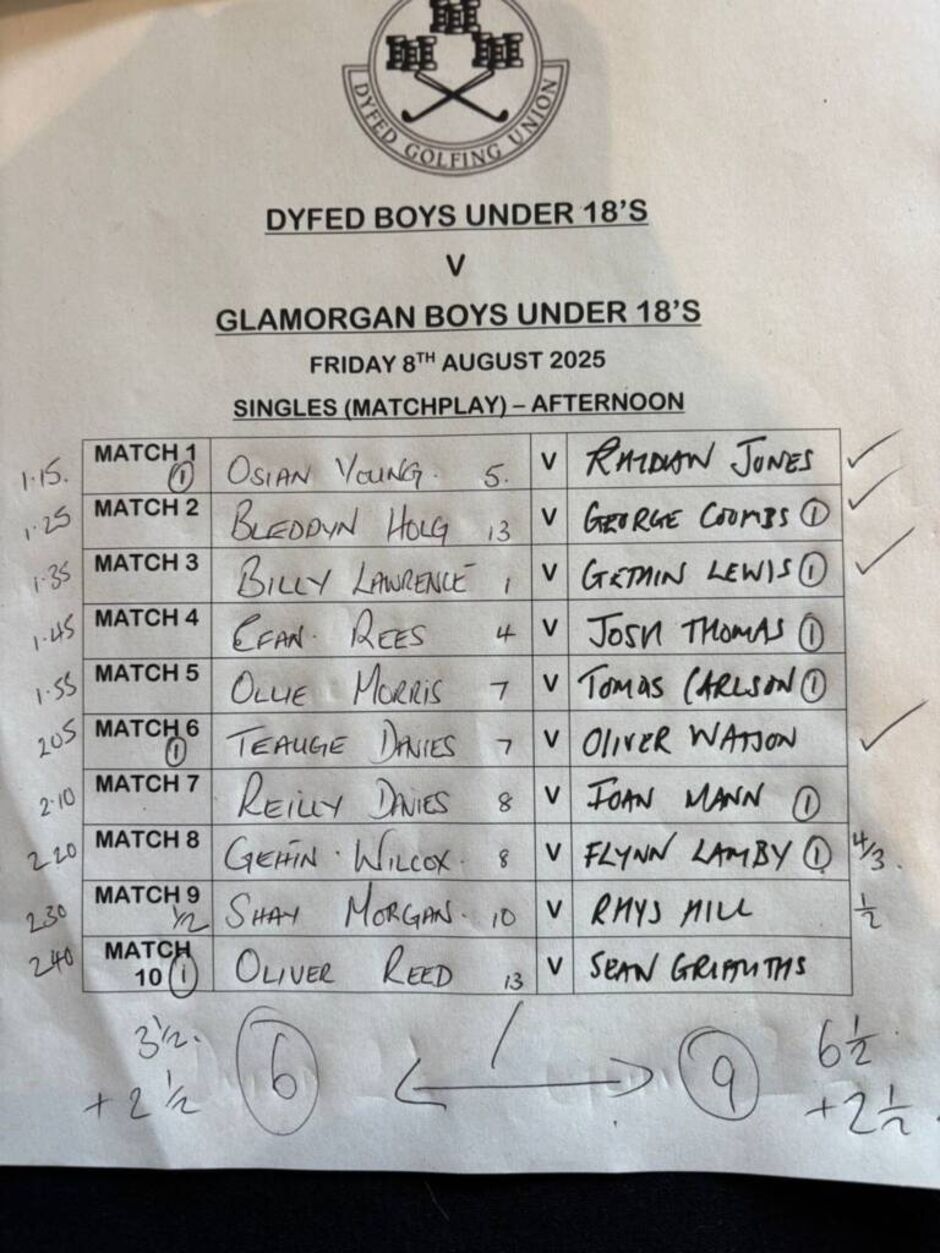 DYFED GOLFING UNION
DYFED BOYS UNDER 18'S
V
GLAMORGAN BOYS UNDER 18'S
FRIDAY 8TH AUGUST 2025
SINGLES (MATCHPLAY) – AFTERNOON
1.15. MATCH 1 ① OSIAN YOUNG. 5. V RHIDIAN JONES ✓
1.25 MATCH 2 BLEDDYN HOLG 13 V GEORGE COOMBS ① ✓
1.35 MATCH 3 BILLY LAWRENCE 1 V GETHIN LEWIS ① ✓
1.45 MATCH 4 EFAN. REES 4 V JOSH THOMAS ①
1.55 MATCH 5 OLLIE MORRIS 7 V TOMAS CARLSON ①
205 MATCH 6 ① TEAUGE DAVIES 7 V OLIVER WATSON ✓
2.10 MATCH 7 REILLY DAVIES 8 V IOAN MANN ①
2.20 MATCH 8 GETHIN. WILCOX. 8 V FLYNN LAMBY ① 4/3.
2.30 MATCH 9 1/2 SHAY MORGAN. 10 V RHYS HILL 1/2
240 MATCH 10 ① OLIVER REED 13 V SEAN GRIFFITHS
3 1/2. 6 / 9 6 1/2.
+ 2 1/2 + 2 1/2.